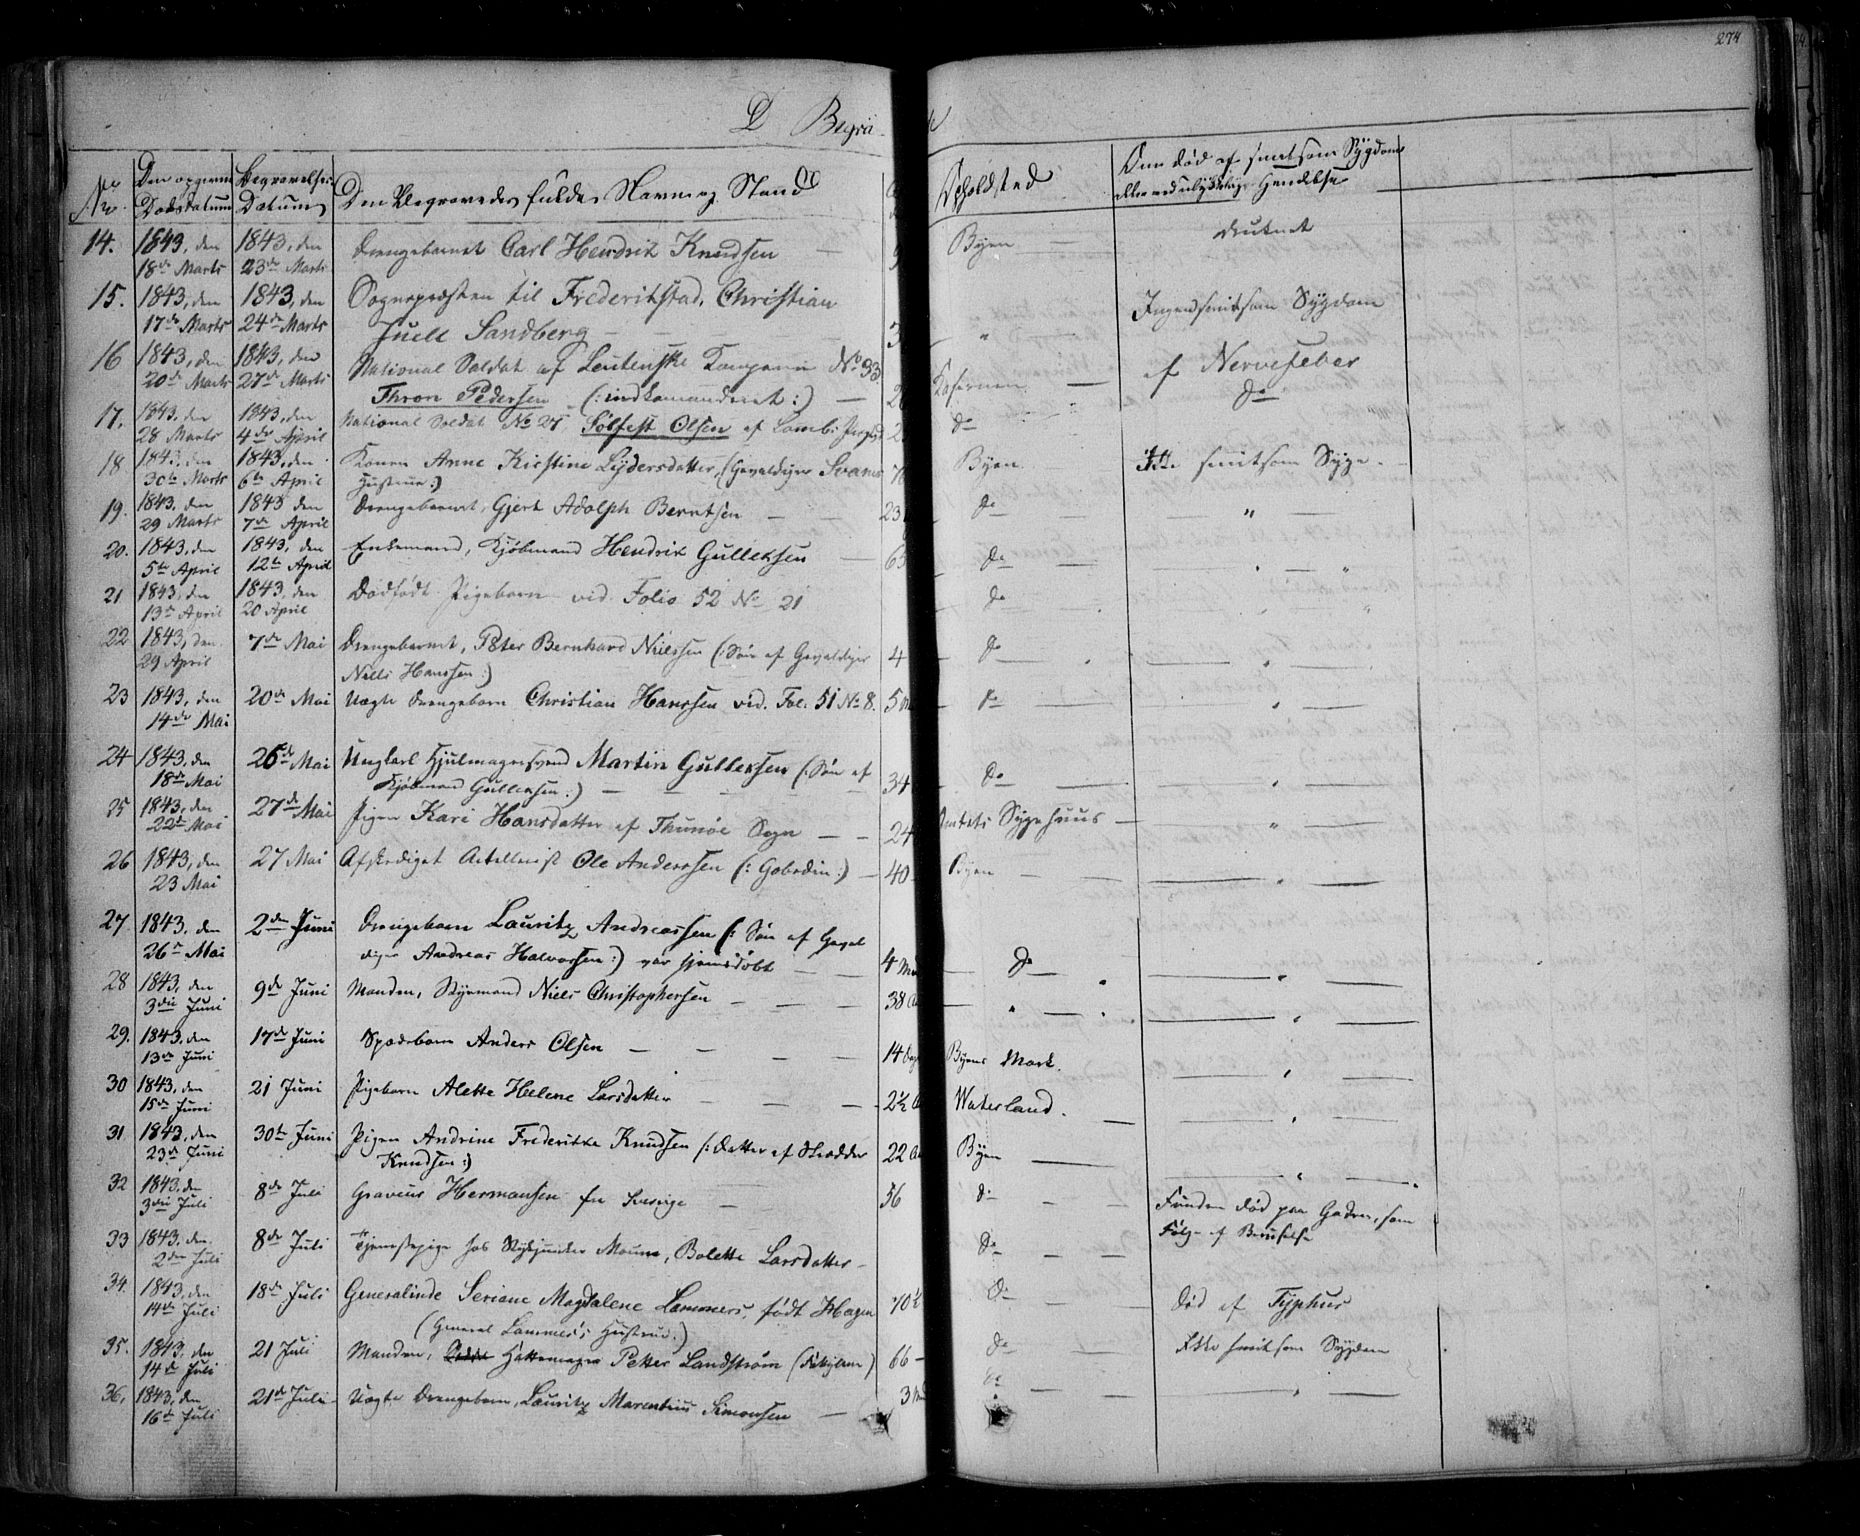 274
D Begra de
No. Den opgivne Dødsdatum Begravelses Datum Den Begravedes fulde Navn og Stand Opholdsted Om død af smitsom Sygdom
eller ved ulykkelig Hændelse
14. 1843, den 1843, den Drengebarnet Carl Hendrik Knudsen — Byen — druknet
18de Marts 23de Marts
15. 1843, den 1843, den Sognepræsten til Frederikstad, Christian Ingen smitsom Sygdom
17de Marts 24de Marts Juell Sandberg — "
16 1843, den 1843, den National Soldat af Kompanie No 93 af Nervefeber
20de Marts 27de Marts Thron Pedersen (: indkomanderet :) — Kasernen — do
17. 1843, den 1843, den National Soldat No 27 Sølfest Olsen af do
28 Marts 4de April
18 1843, den 1843, den Konen Anne Kirstine Lydersdatter, (Gevaldiger Byen Ikke smitsom Syge
30te Marts 6te April Hustrue :)
19. 1843, den 1843 den Drengebarnet, Gjert Adolph Berntsen — 23 do — " —
29 Marts 7de April
20. 1843, den 1843, den Enkemand, Kjøbmand Hendrik Gulleksen — 65 do — "
5te April 12te April
21 1843, den 1843, den Dødfødt Pigebarn vid. Folio 52 No 21 do "
13de April 20 April
22 1843, den 7de Mai Drengebarnet, Peter Bernhard Nielssen (: Søn af Gevaldiger 4 do — " —
29 April Niells Hanssen :)
23 1843, den 20de Mai Uægte Drengebarn Christian Hanssen vid. Fol. 51 No 8. 5 do — " —
14de Mai
24 1843, den 26de Mai Ungkarl Hjulmagersvend Martin Gulleksen (: Søn af 34 do — " —
18de Mai Kjøbmand Gulleksen :) —
25 1843, den 27de Mai Pigen Kari Hansdatter af Thunøe Sogn — 24 Amtets Sygehuus — " —
22de Mai
26 1843, den 27 Mai Afskediget Artillerist Ole Anderssen (: Gobodin :) — 40 Byen — " —
23 Mai
27. 1843, den 2den Juni Drengebarn Lauritz Andreassen (: Søn af Geval
26de Mai diger Andreas Halvorssen :) var hjemmedøbt — 4 do — " —
28 1843, den 9de Juni Manden, Styrmand Niels Christophersen — 38 " — " —
3die Juni
29. 1843, den 17de Juni Spædbarn Anders Olsen — 14 Dage Byens Mark. — " —
13de Juni
30 1843, den 21 Juni Pigebarn Alette Helene Larsdatter — 2½ Waterland. — " —
15de Juni
31. 1843, den 30te Juni Pigen Andrine Frederikke Knudsen (: Datter af Skrædder 22 Byen — " —
23de Juni Knudsen :)
32 1843, den 8de Juli Graveur Hermansen fra Sverige — 56 do — Funden død paa Gaden, som
3die Juli Følge af Beruselse
33 1843, den 8de Juli Tjenestepige hos Stykjunker Moum, Bolette Larsdatter — do —
2den Juli
34. 1843, den 18de Juli Generalinde Seriane Magdalene Lammers, født Hagen 70½ do — Død af Typhus
14de Juli (General Lammers's Hustrue :)
35. 1843, den 21 Juli Manden, Hattemager Petter Landstrøm 66 — do — Ikke smitsom Sygdom
14de Juli
36. 1843, den 21de Juli Uægte Drengebarn, Lauritz Marentius Simonsen — 3 do — " —
16de Juli